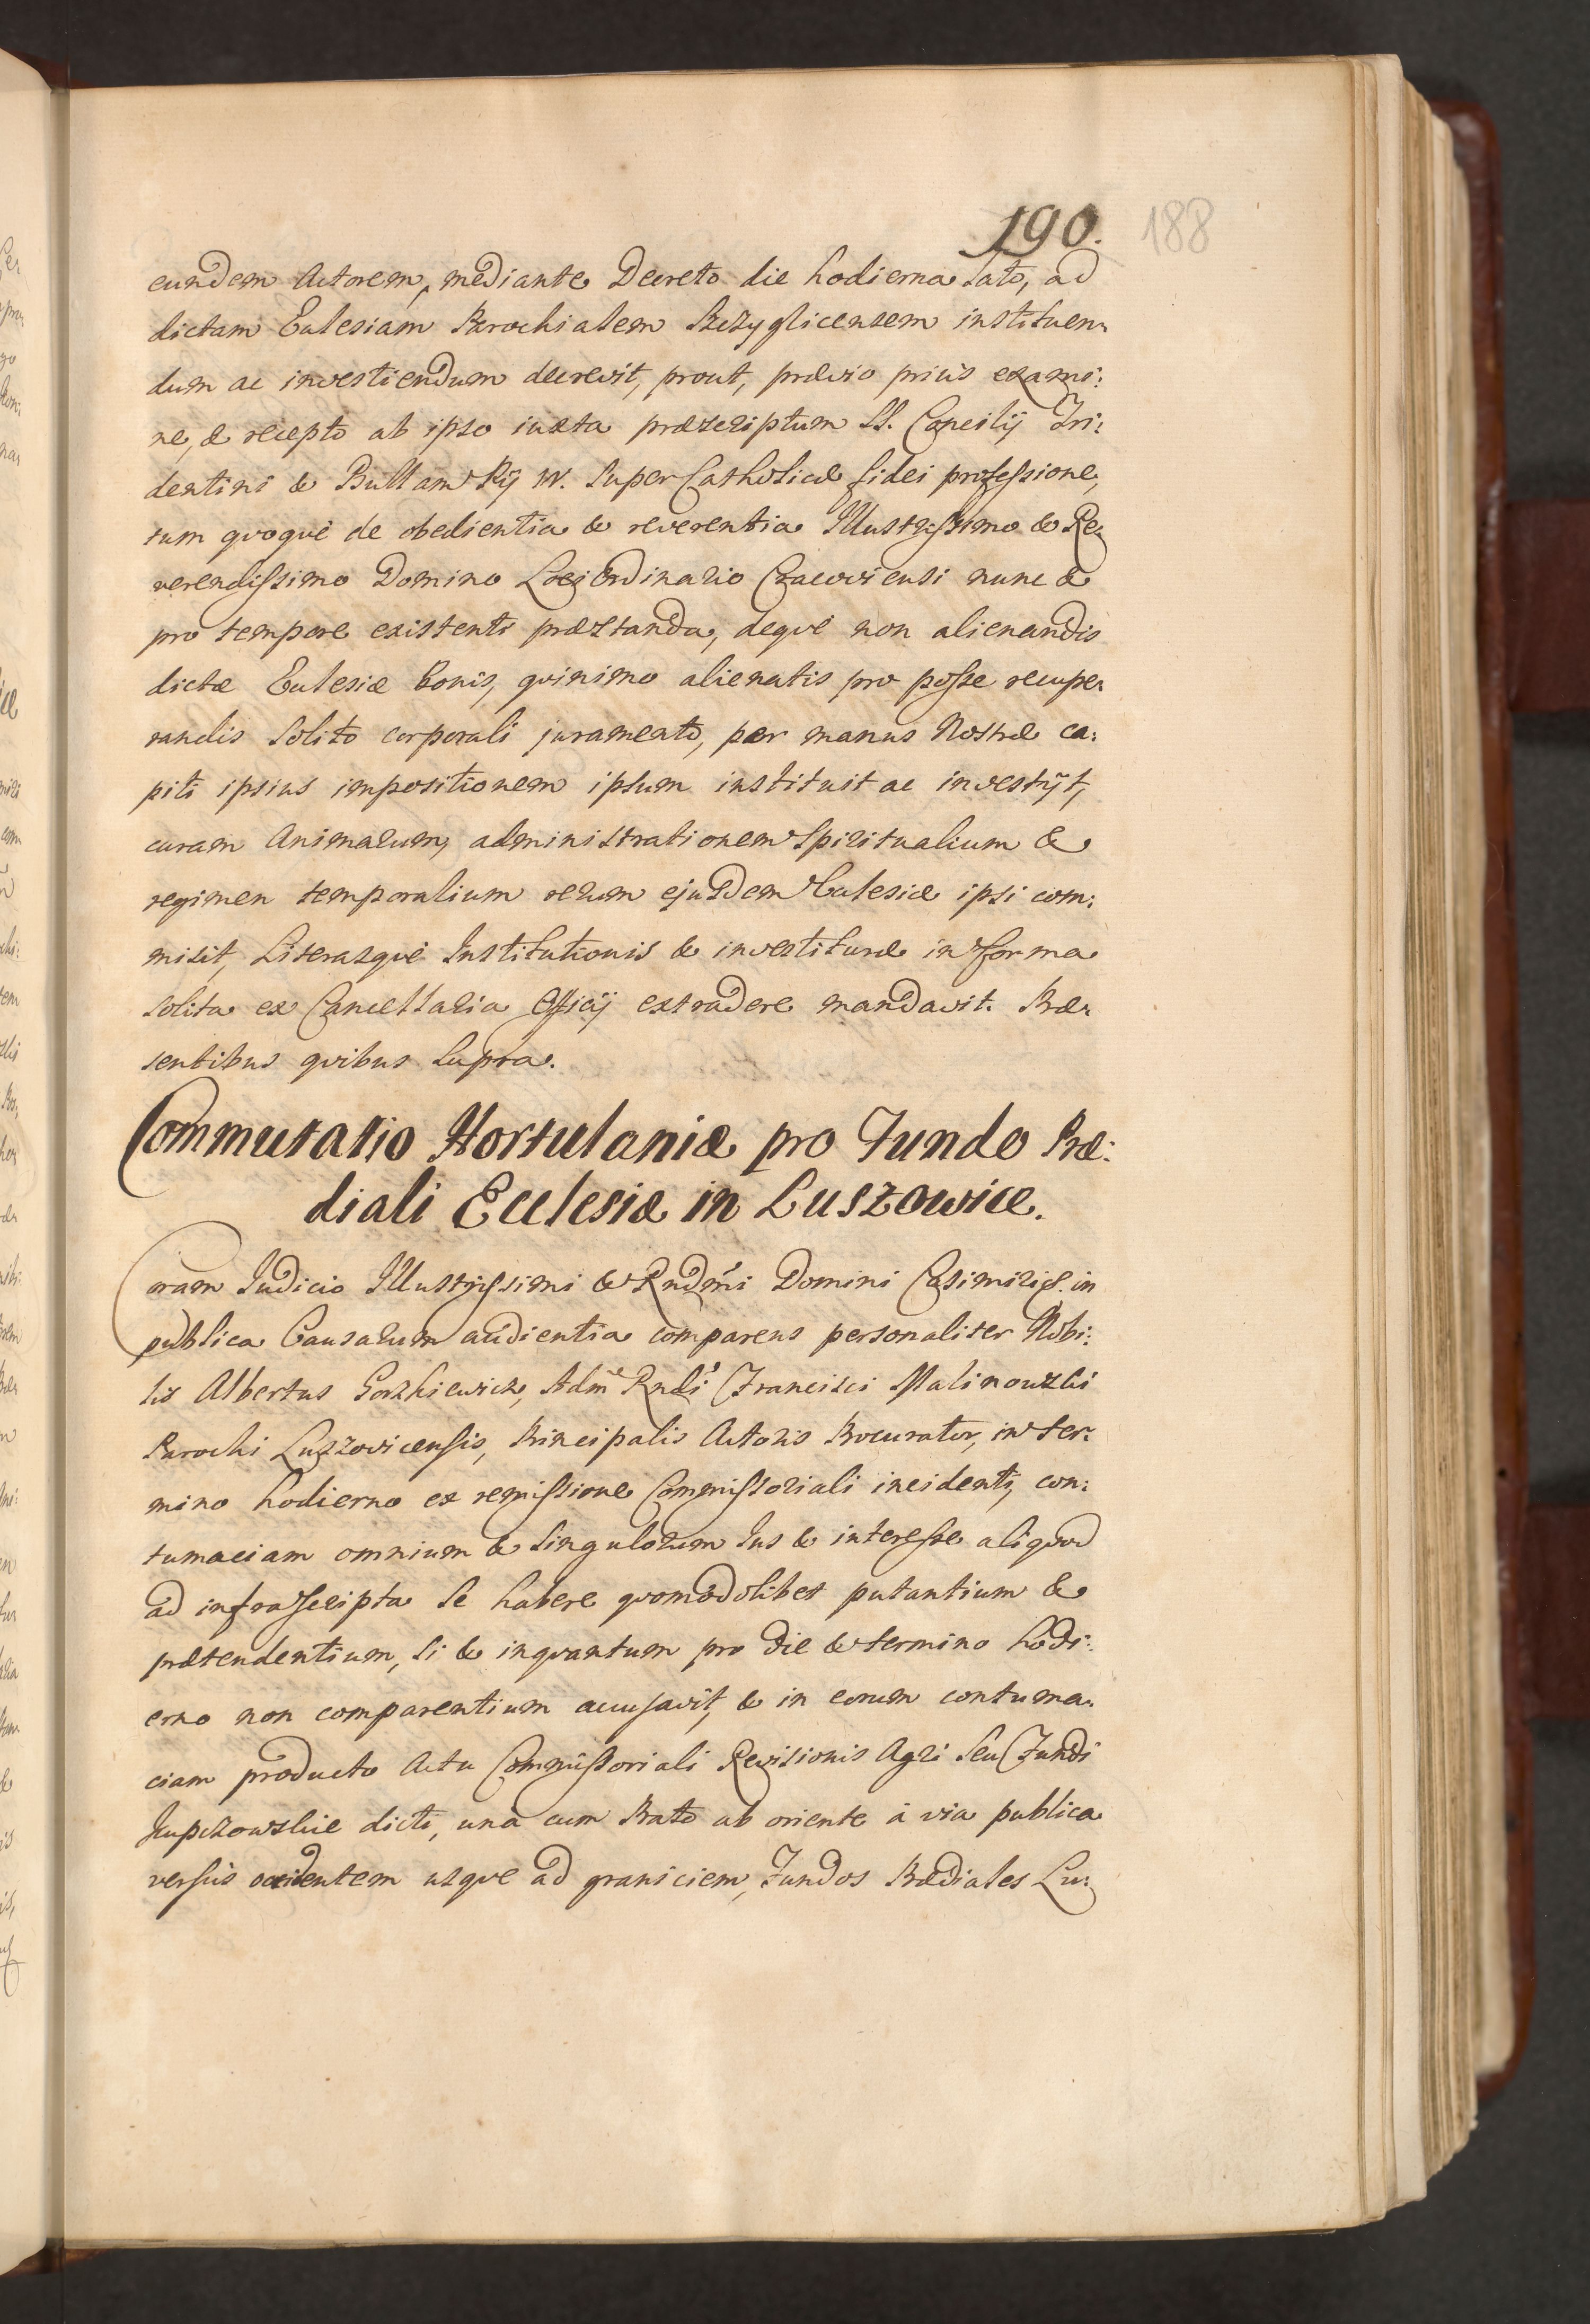 190. 188
eundem Actorem, mediante Decreto die hodierna lato, ad
dictam Ecclesiam Parochialem Przyglicensem instituen„
dum ac investiendum decrevit, prout, prævio priùs exami:
ne, & recepto ab ipso iuxta præscriptum SS. Concilij Tri:
dentini & Bullam Pij IV. super Catholicæ fidei professione,
tum quoquè de obedientia & reverentia Illustrissimo & Re:
verendissimo Domino Loci Ordinario Cracoviensi nunc &
pro tempore existenti præstanda, dequè non alienandis
dictæ Ecclesiæ bonis, quinimo alienatis pro posse recupe„
randis solito corporali juramento, per manus Nostræ ca:
piti ipsius impositionem ipsum instituit ac investijt,
curam Animarum, administrationem Spiritualium &
regimen temporalium rerum ejusdem Ecclesiæ ipsi com:
misit, Literasquè Institutionis & investituræ in forma
solita ex Cancellaria Officij extradere mandavit. Præ„
sentibus quibus supra.
Commutatio Hortulaniæ pro Fundo Præ:
diali Ecclesiæ in Luszowice.
Coram Judicio Illustrissimi & Rndmi Domini Casimiri &. in
publica Causarum audientia comparens personaliter Nobi:
lis Albertus Gorzkiewicz, Adm Rndi Francisci Malinowski
Parochi Luszovicensis, Principalis Actoris Procurator, in ter:
mino hodierno ex remissione Commissoriali incidenti, con:
tumaciam omnium & singulorum Jus & interesse aliquod
ad infrascripta se habere quomodolibet putantium &
prætendentium, si & inquantum pro die & termino hodi:
erno non comparentium accusavit, & in eorum contuma„
ciam producto Actu Commissoriali Revisionis Agri seu Fundi
dicti, unà cum Prato ab oriente à via publica
versùs occidentem usque ad graniciem, Fundos Prædiales Lu: